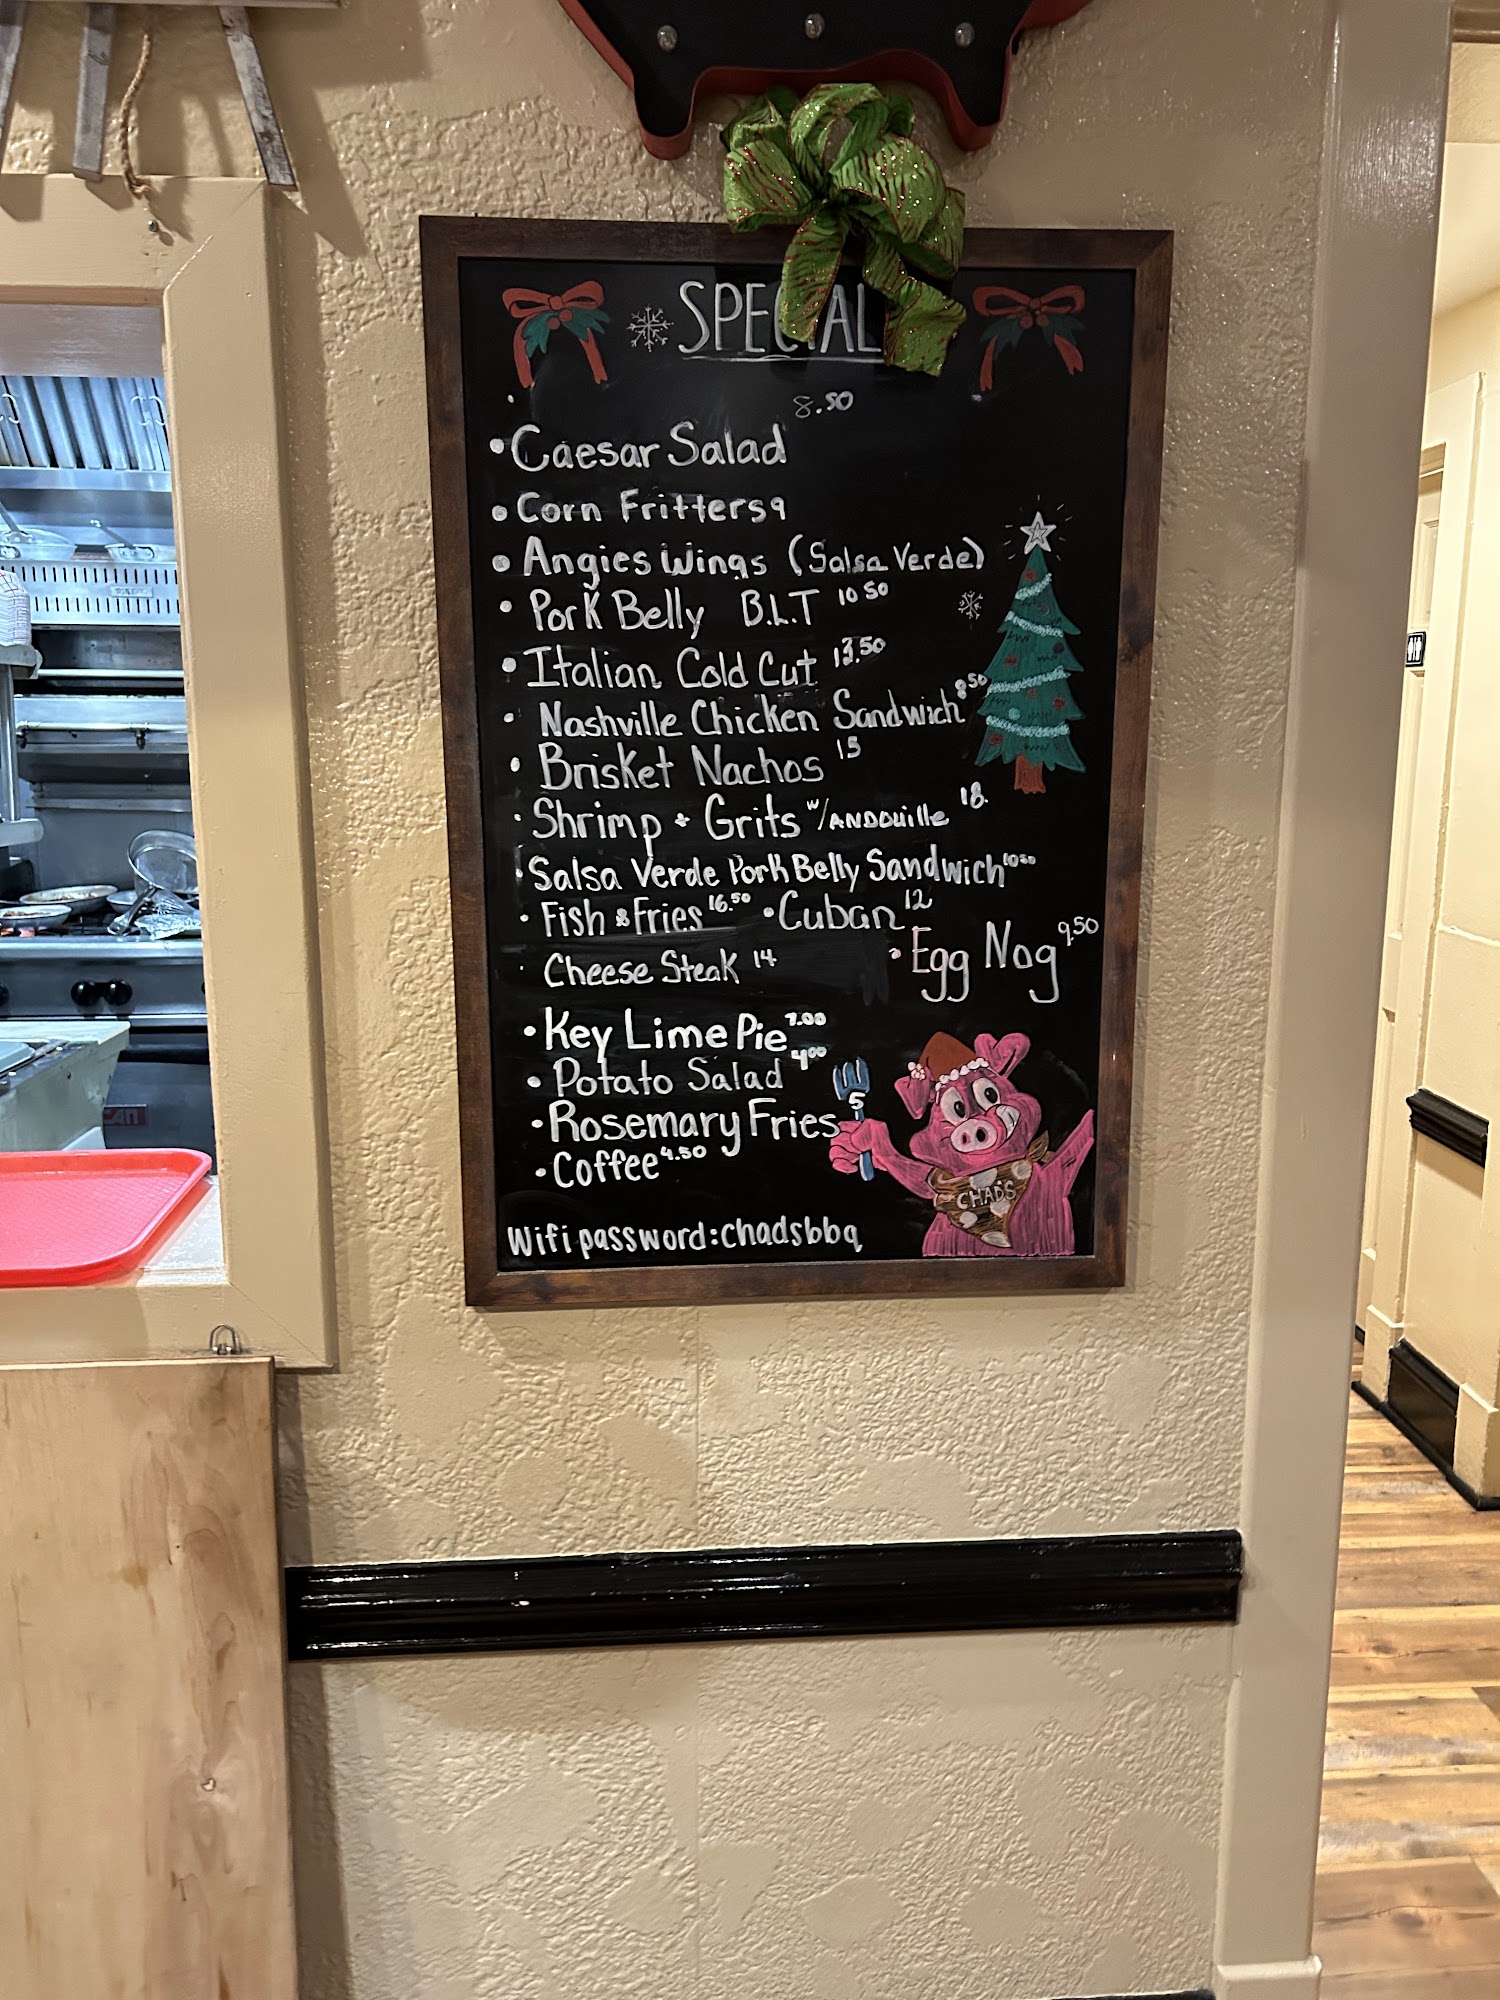 SPECIAL
8.50
• Caesar Salad
• Corn Fritters 9
• Angies Wings (Salsa Verde)
• Pork Belly B.L.T 10 50
• Italian Cold Cut 13.50
• Nashville Chicken Sandwich 8 50
• Brisket Nachos 15
• Shrimp + Grits w/ANDOUille 18.
• Salsa Verde Pork Belly Sandwich 10 50
• Fish & Fries 16.50 • Cuban 12
• Egg Nog 9.50
• Cheese Steak 14
• Key Lime Pie 7.00
• Potato Salad 4 00
• Rosemary Fries 5
• Coffee 4.50
CHAD'S
Wifi password: chadsbbq